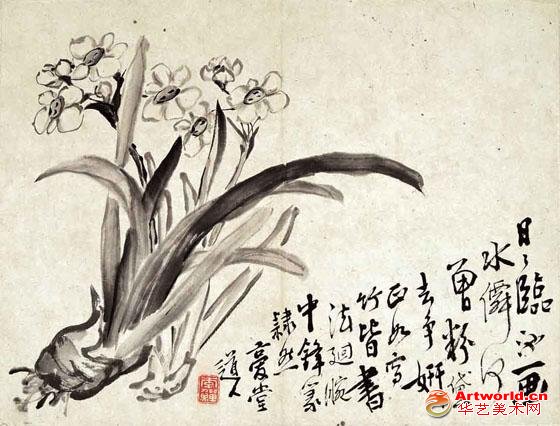 日〻臨池畫
水僊何
曾粉黛
去爭妍
正如寫
竹皆書
法迴腕
中鋒篆
隸然
堂
道人
Artworld.cn
华艺美术网